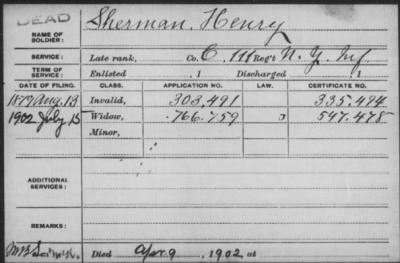 DEAD
NAME OF SOLDIER: Sherman, Henry
SERVICE: Late rank, Co. C, 111 Reg't N. Y. Inf.
TERM OF SERVICE: Enlisted , 1 Discharged , 1
DATE OF FILING. CLASS. APPLICATION NO. LAW. CERTIFICATE NO.
1879 Aug. 13 Invalid, 303.491 335.494
1902 July 15 Widow, 766.759 547.478
Minor,
ADDITIONAL SERVICES:
REMARKS:
Died Apr. 9, 1902 at